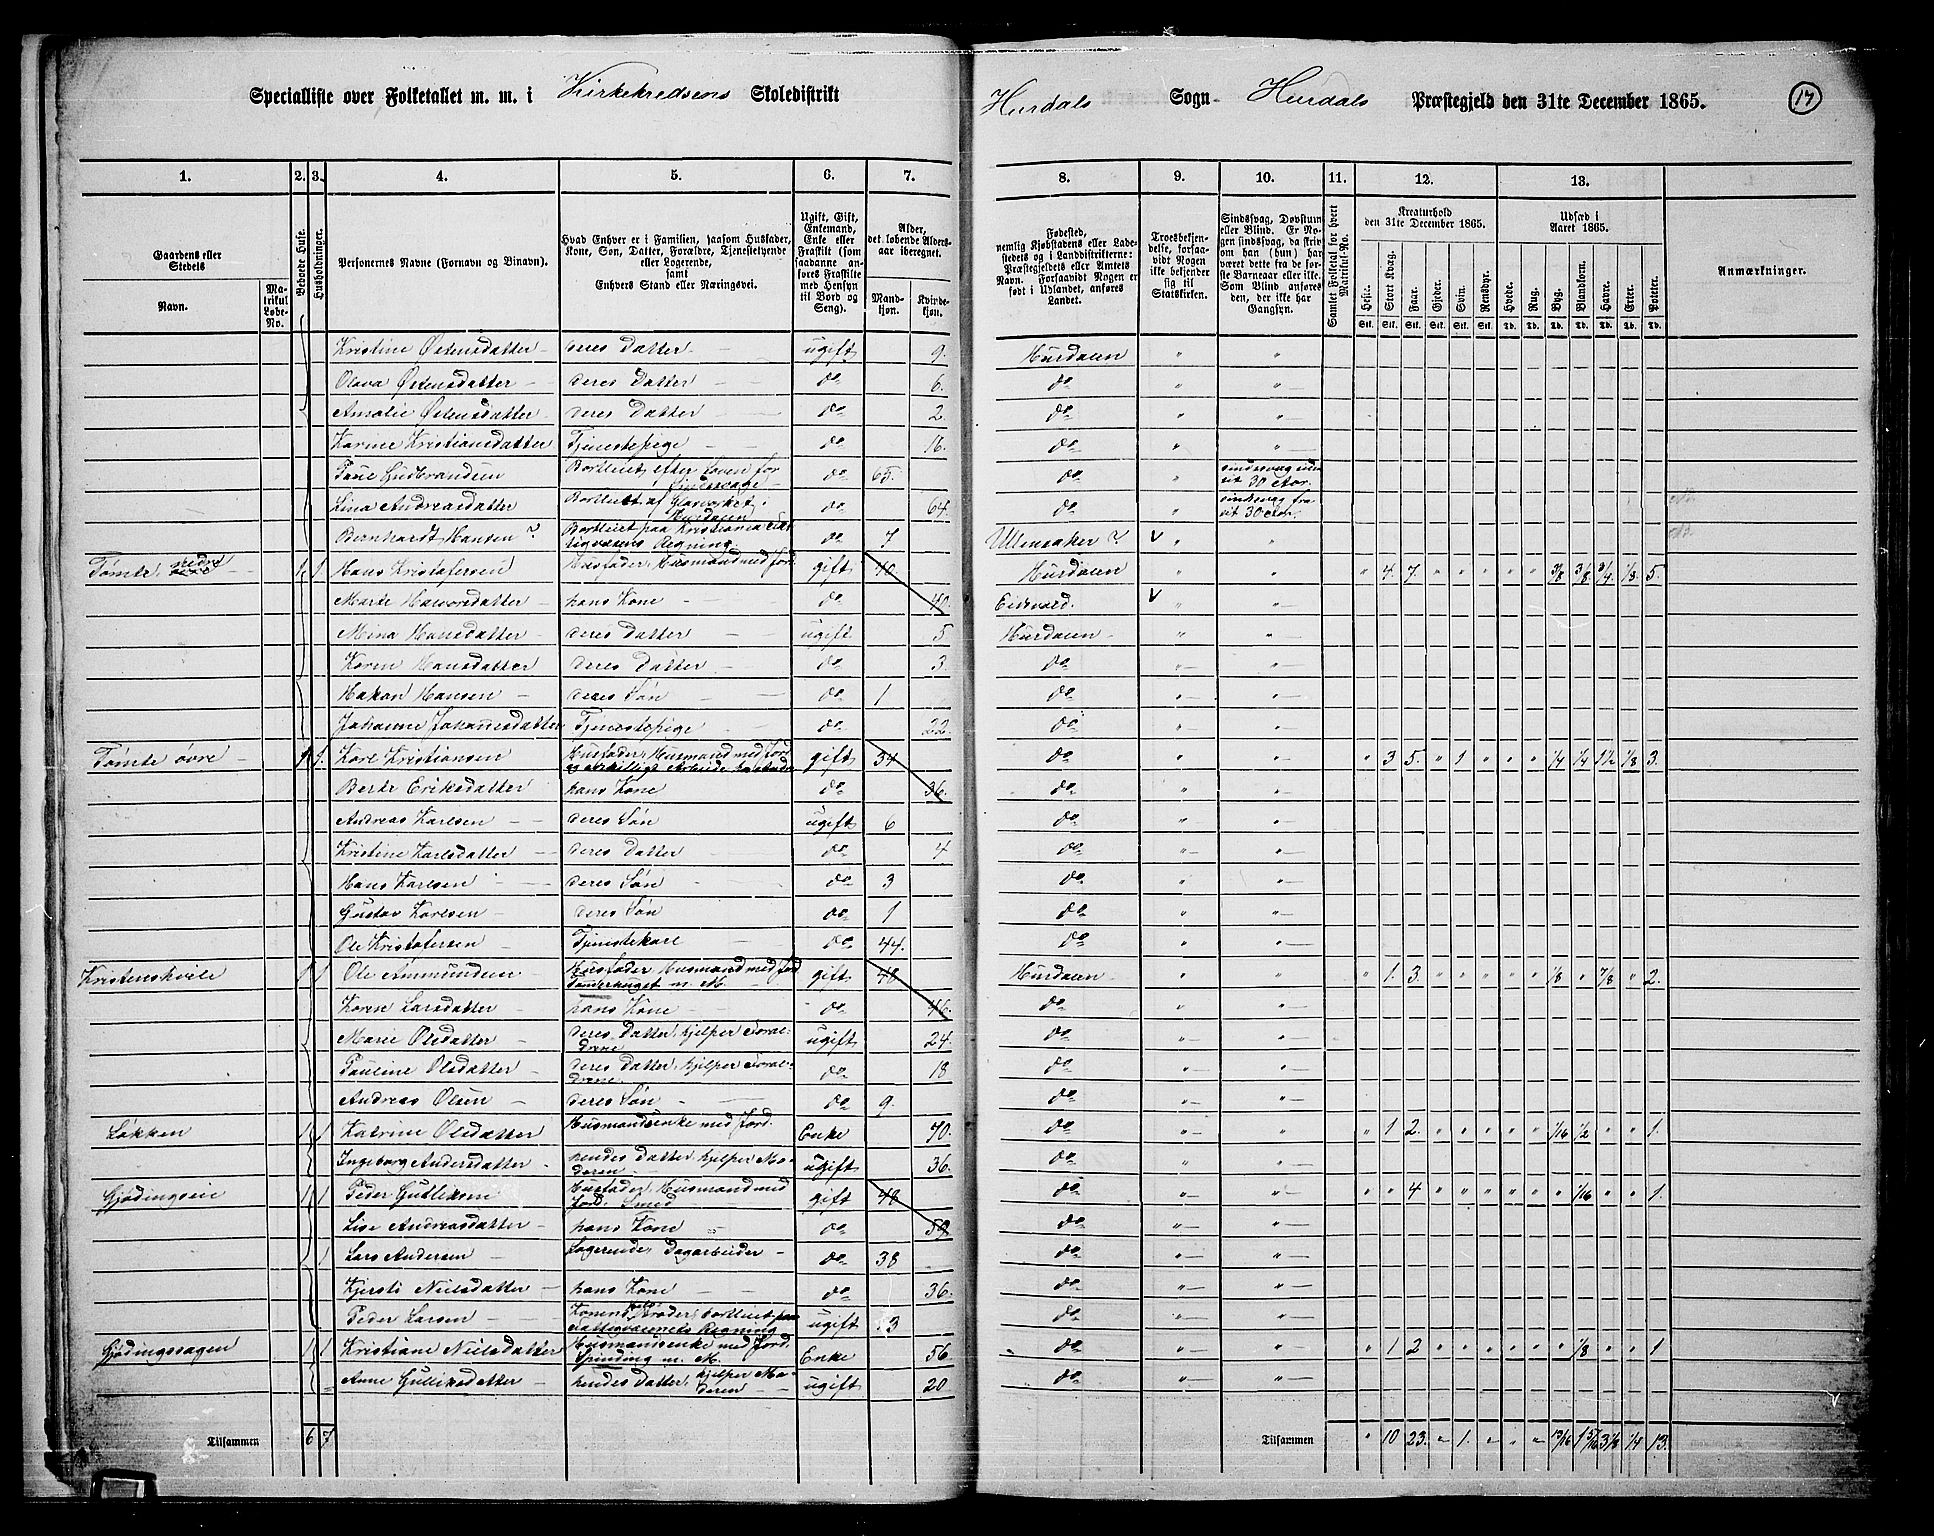 Specialliste over Folketallet m. m. i Kirkekredsens Skoledistrikt Hurdals Sogn Hurdals Præstegjeld den 31te December 1865. 17
1. 2. 3. 4. 5. 6. 7. 8. 9. 10. 11. 12. 13.
Gaardens eller Stedets
Navn. Matrikul Løbe-No.
Beboede Huse.
Husholdninger.
Personernes Navne (Fornavn og Binavn).
Hvad Enhver er i Familien, saasom Husfader, Kone, Søn, Datter, Forældre, Tjenestetyende eller Logerende, samt Enhvers Stand eller Næringsvei.
Ugift, Gift, Enkemand, Enke eller Fraskilt (saadanne anføres som Fraskilte med Hensyn til Bord og Seng).
Alder, det løbende Aldersaar iberegnet.
Mandkjøn. Kvindekjøn.
Fødested, nemlig Kjøbstadens eller Ladestedets og i Landdistrikterne: Præstegjeldets eller Amtets Navn. Forsaavidt Nogen er født i Udlandet, anføres Landet.
Troesbekjendelse, forsaavidt Nogen ikke bekjender sig til Statskirken.
Sindssvag, Døvstum eller Blind.
Samlet Folketal for hvert Matrikul-No.
Kreaturhold den 31te December 1865.
Heste. Stort Kvæg. Faar. Gjeder. Svin. Rensdyr.
Udsæd i Aaret 1865.
Hvede. Rug. Byg. Blandkorn. Havre. Erter. Poteter.
Anmærkninger.
Kristine Østensdatter deres Datter ugift 9. Hurdalen
Olava Østensdatter deres Datter do 6. do
Amalie Østensdatter deres Datter do 2. do
Karine Kristiansdatter Tjenestepige do 16. do
Gudbrandsen Bortleiet efter Loven for Sindssvage do 65. do
Lina Andreasdatter Bortleiet af Glasverket i Hurdalen do 64. do
Bernhardt Hansen ? Bortleiet paa Kristiania Regning do 7 Ullensaker ? V
Tømte, nedre 1 1 Hans Kristofersen Husfader, Husmand med Jord gift 40. Hurdalen " 4. 7. " " " " " 3/8 3/8 3/4 1/8 5.
Marte Halvorsdatter hans Kone do 40. Eidsvold. V
Mina Hansdatter deres Datter ugift 5 Hurdalen
Karen Hansdatter deres Datter do 3. do
Hakon Hansen deres Søn do 1 do
Johanne Johannesdatter Tjenestepige do 22. do
Tømte øvre 1 1 Karl Kristiansen Husfader, Husmand med Jord gift 34 do " 3 5. " 1 " " " 1/4 1/4 1 1/2 1/8 3.
Berte Eriksdatter hans Kone do 36. do
Andreas Karlsen deres Søn ugift 6 do
Kristine Karlsdatter deres Datter do 4 do
Hans Karlsen deres Søn do 3 do
Gustav Karlsen deres Søn do 1 do
Ole Kristofersen Tjenestekarl do 44. do
Kristenshvile 1 1 Ole Ammundsen Husfader, Husmand med Jord gift 48 Hurdalen " 1. 3. " " " " " 1/8 " 7/8 " 2.
Karen Larsdatter hans Kone do 46. do
Marie Olsdatter deres Datter, hjelper Foraldrene ugift 24. do
Pauline Olsdatter deres Datter, hjelper Foraldrene do 18 do
Andreas Olsen deres Søn do 9. do
Løkken 1 1 Katrine Olsdatter Husmandsenke med Jord. Enke 70. do " 1 2. " " " " " 1/16 1/2 " " 1.
Ingeborg Andersdatter hendes Datter, hjelper Moderen ugift 36. do
Gjødingseie 1 1 Peder Gulliksen Husfader, Husmand med Jord. Smed gift 48 do " " 4 " " " " " " 1/16 " " 1.
Lise Andreasdatter hans Kone do 50 do
1 Lars Andersen Logerende, Dagarbeider do 38 do
Kjersti Nielsdatter hans Kone do 36. do
Peder Larsen Konens Broder, bortleiet paa Fattigvæsenets Regning ugift do
Gjødingshagen 1 1 Kristiane Nielsdatter Husmandsenke med Jord. Spinding m. M. Enke 56 do " 1 2 " " " " " " 1/8 " " 1
Anne Gulliksdatter hendes Datter, hjelper Moderen ugift 20 do
Tilsammen 6 7 Tilsammen " 10 23. " 1. " " " 13/16 1 5/16 3 1/8 1/4 13.